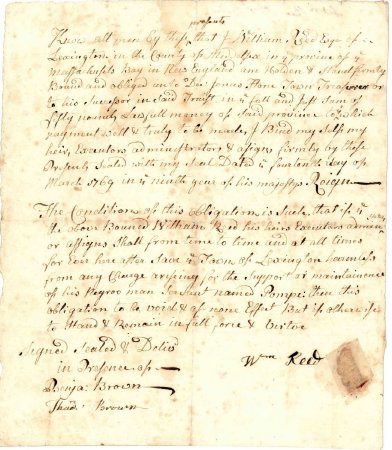 presents
Know all men by these that I William Reed Esqr of
Lexington in the County of Middlesex in ye province of ye
Massachusets Bay in New England am Holden & Stand firmly
Bound and obliged unto Decn Jones Stone Town Treasurer or
to his Successor in Said Trust in ye full and Just Sum of
fifty pounds Lawfull money of Said province to which
payment well & truly to be made, I Bind my Self my
heirs Executors administrators & assigns firmly by these
Presents Sealed with my Seal Dated ye fourteenth day of
March 1769 in ye ninth year of his majestys Reign
The Condition of this obligation is Such, that if ye
the above Bound William Reed his heirs Executors
or assigns Shall from time to time and at all times
for Ever here after Save ye Town of Lexington harmless
from any Charge arising for the Support or maintainence
of his Negroo man Servant named Pompi: then this
obligation to be void & of none Effect But if otherwise
to Stand & Remain in full force & Virtue
Signed Sealed & Delivd
in Presence of
Wm Reed
Benja: Brown
Thad: Brown